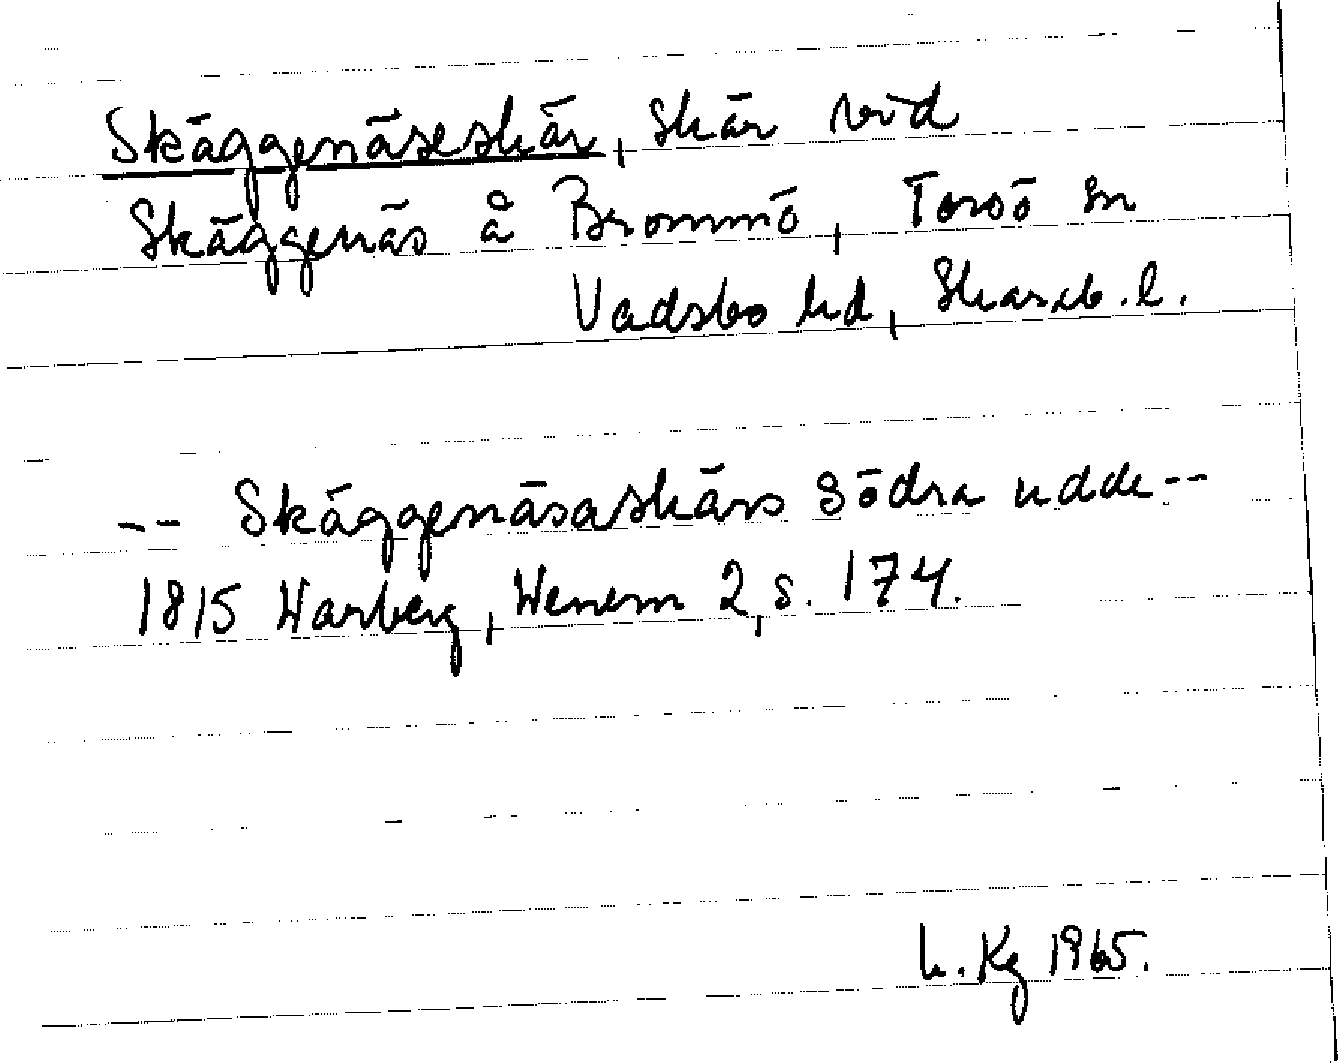 Skäggenäseskär, skär vid
Skäggenäs å Brommö, Torsö sn
Vadsbo hd, Skarab. l.
-- Skäggenäsaskärs södra udde --
1815 Warberg, Wenern 2, s. 174.
L. Kg 1965.